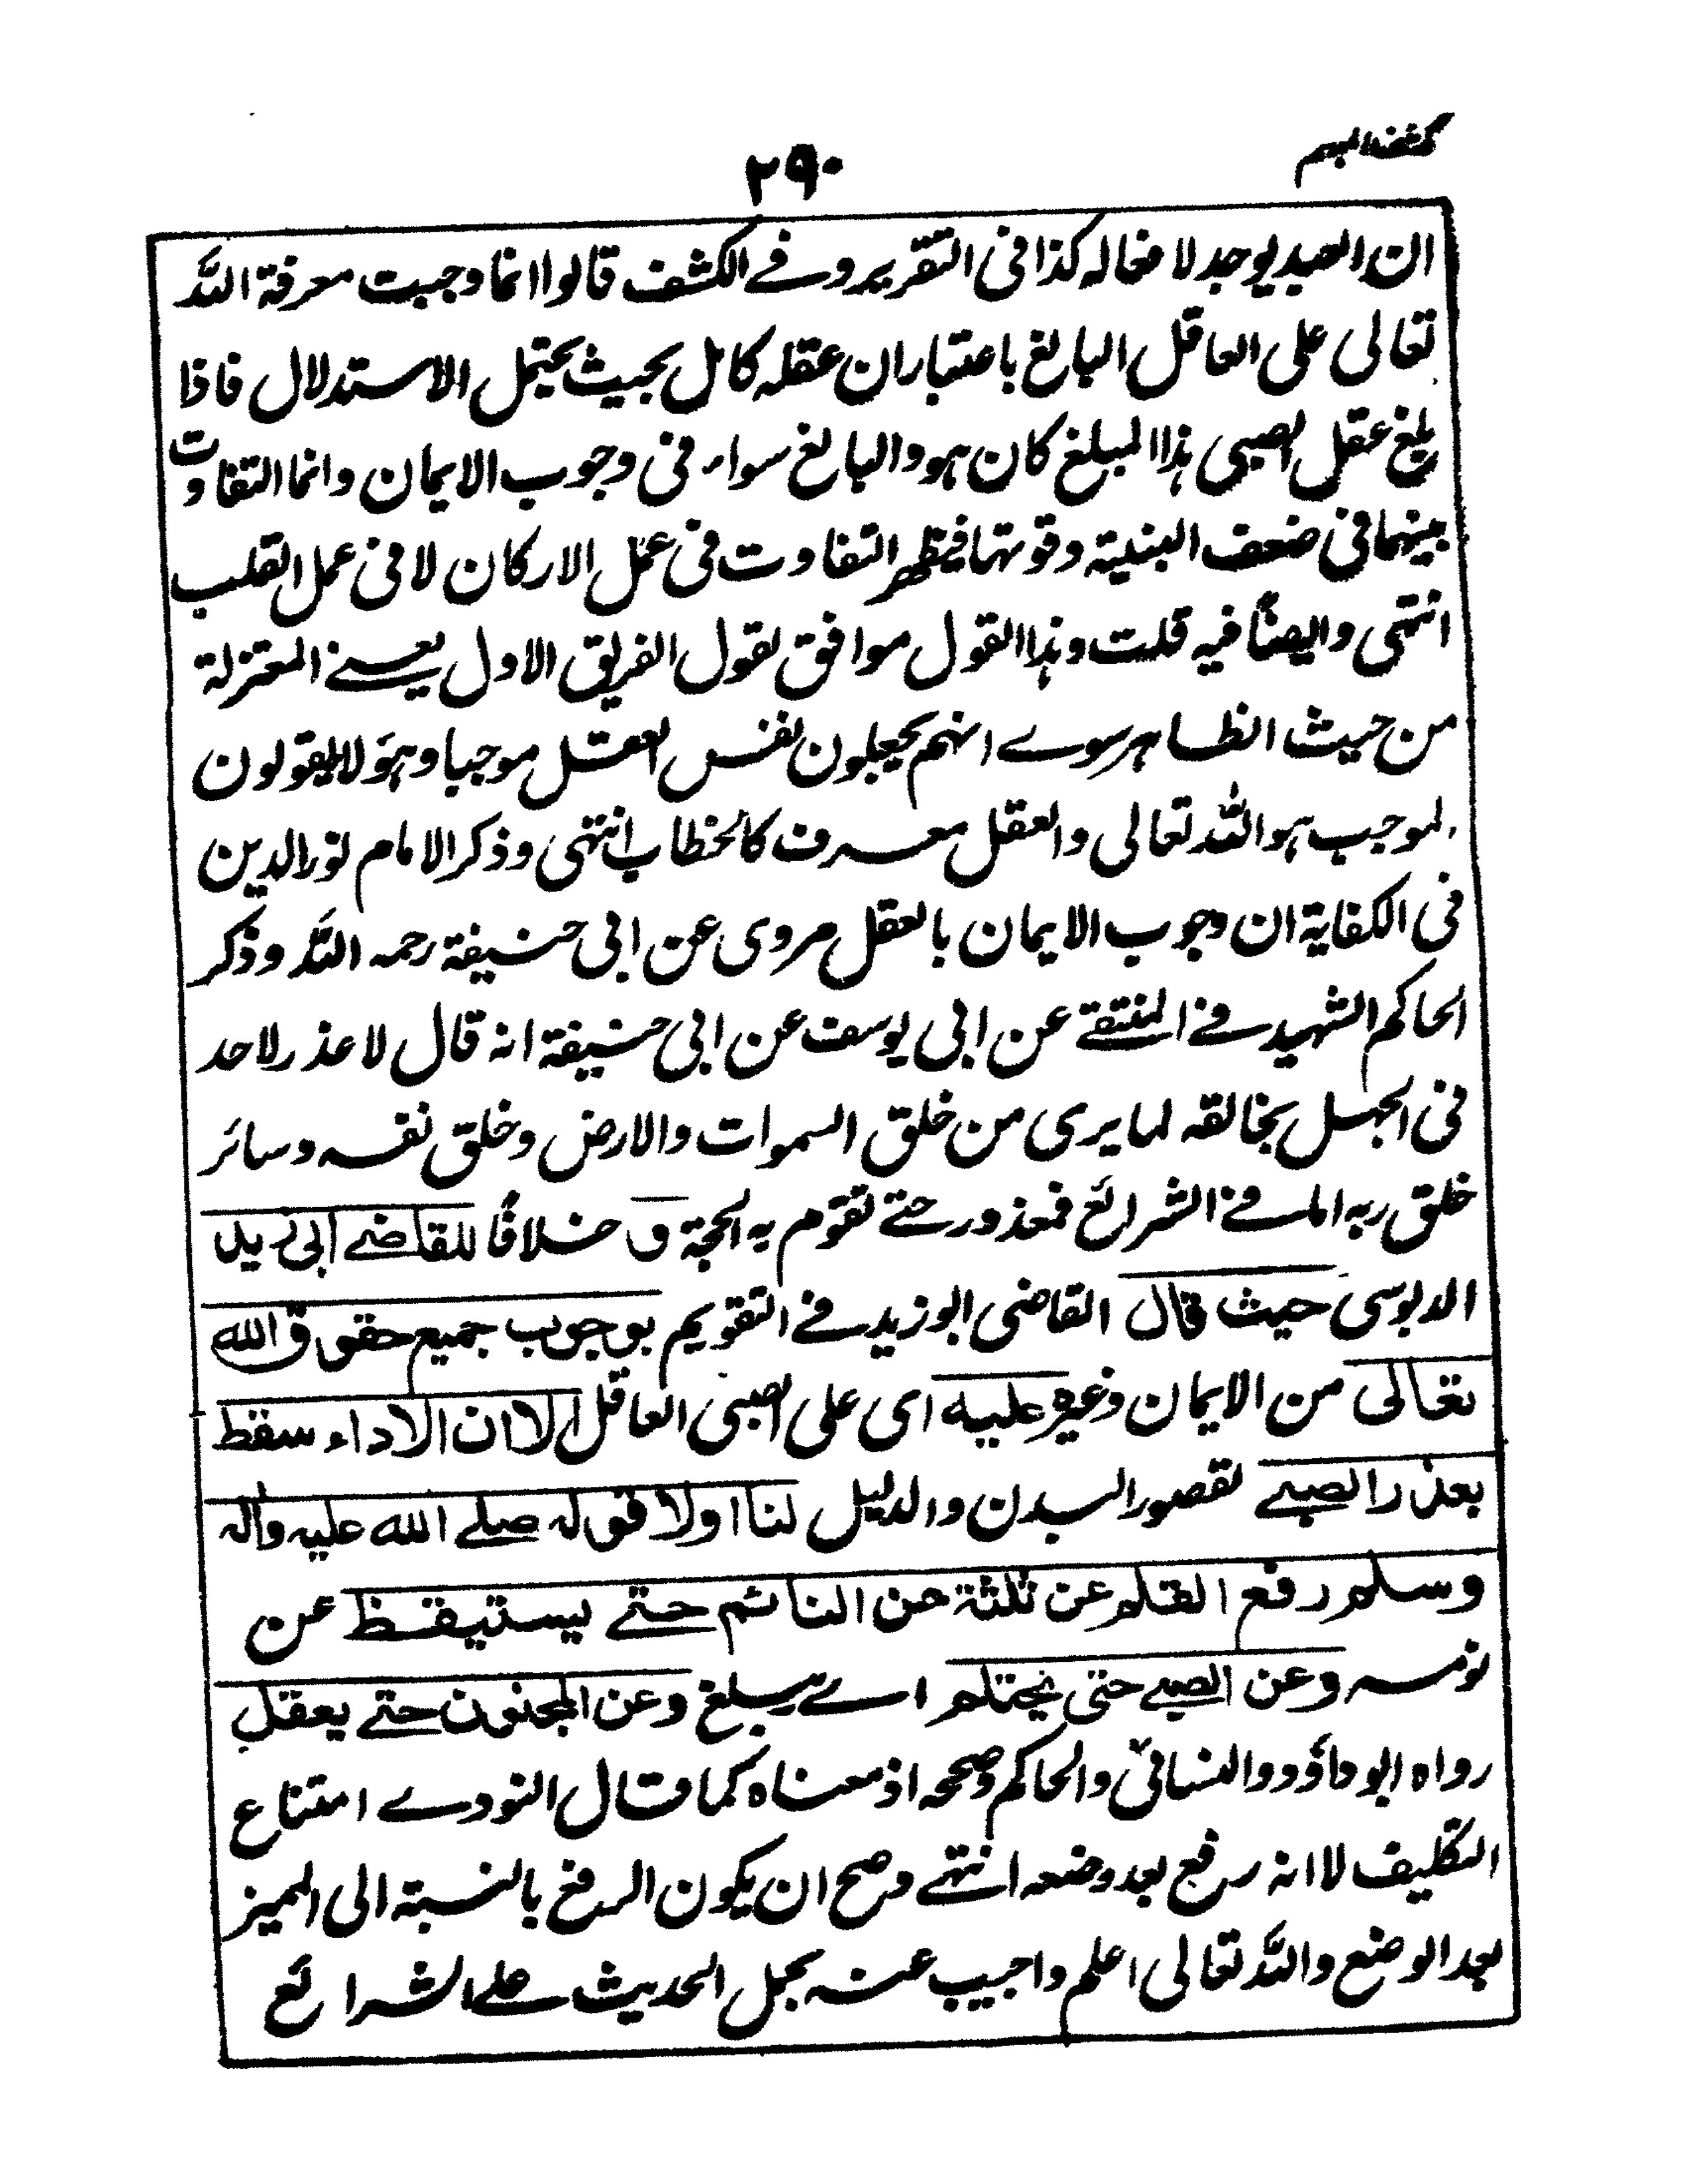 كشف المبهم
٢٩٠
ان العبد يوجد لافعاله كذا فى التقرير وفے الكشف قالوا انما وجبت معرفة اللّٰه
تعالى على العاقل البالغ باعتبار ان عقله كامل بحيث يحتمل الاستدلال فاذا
بلغ عقل الصبى هذا المبلغ كان هو والبالغ سواء فى وجوب الايمان وانما التفاوت
بينهما فى ضعف البنية وقوتها فيظهر التفاوت فى عمل الاركان لا فى عمل القلب
انتهى وايضًا فيه قلت وهذا القول موافق لقول الفريق الاول يعنے المعتزلة
من حيث الظاهر سوے انهم يجعلون نفس العقل موجبا وهؤلاء يقولون
الموجب هو اللّٰه تعالى والعقل معرف كالخطاب انتهى وذكر الامام نور الدين
فى الكفاية ان وجوب الايمان بالعقل مروى عن ابى حنيفة رحمه اللّٰه وذكر
الحاكم الشهيد فے المنتقے عن ابى يوسف عن ابى حنيفة انه قال لا عذر لاحد
فى الجهل بخالقه لما يرى من خلق السموات والارض وخلق نفسه وسائر
خلق ربه اما فے الشرائع فمعذور حتے تقوم به الحجة و خلافًا للقاضے ابى زيد
الدبوسى حيث قال القاضى ابو زيد فے التقويم بوجوب جميع حقوق الله
تعالى من الايمان وغيره عليه اى على الصبى العاقل الا ان الاداء سقط
بعذر الصبے لقصور البدن والدليل لنا اولا قوله صلے الله عليه واله
وسلم رفع القلم عن ثلثة عن النائم حتے يستيقظ عن
نومه وعن الصبے حتى يحتلم اے يبلغ وعن المجنون حتے يعقل
رواه ابو داؤد والنسائى والحاكم وصححه اذ معناه كما قال النووے امتناع
التكليف لا انه رفع بعد وضعه انتهے وصح ان يكون الرفع بالنسبة الى المميز
بعد الوضع واللّٰه تعالى اعلم واجيب عنه بحمل الحديث علے الشرائع